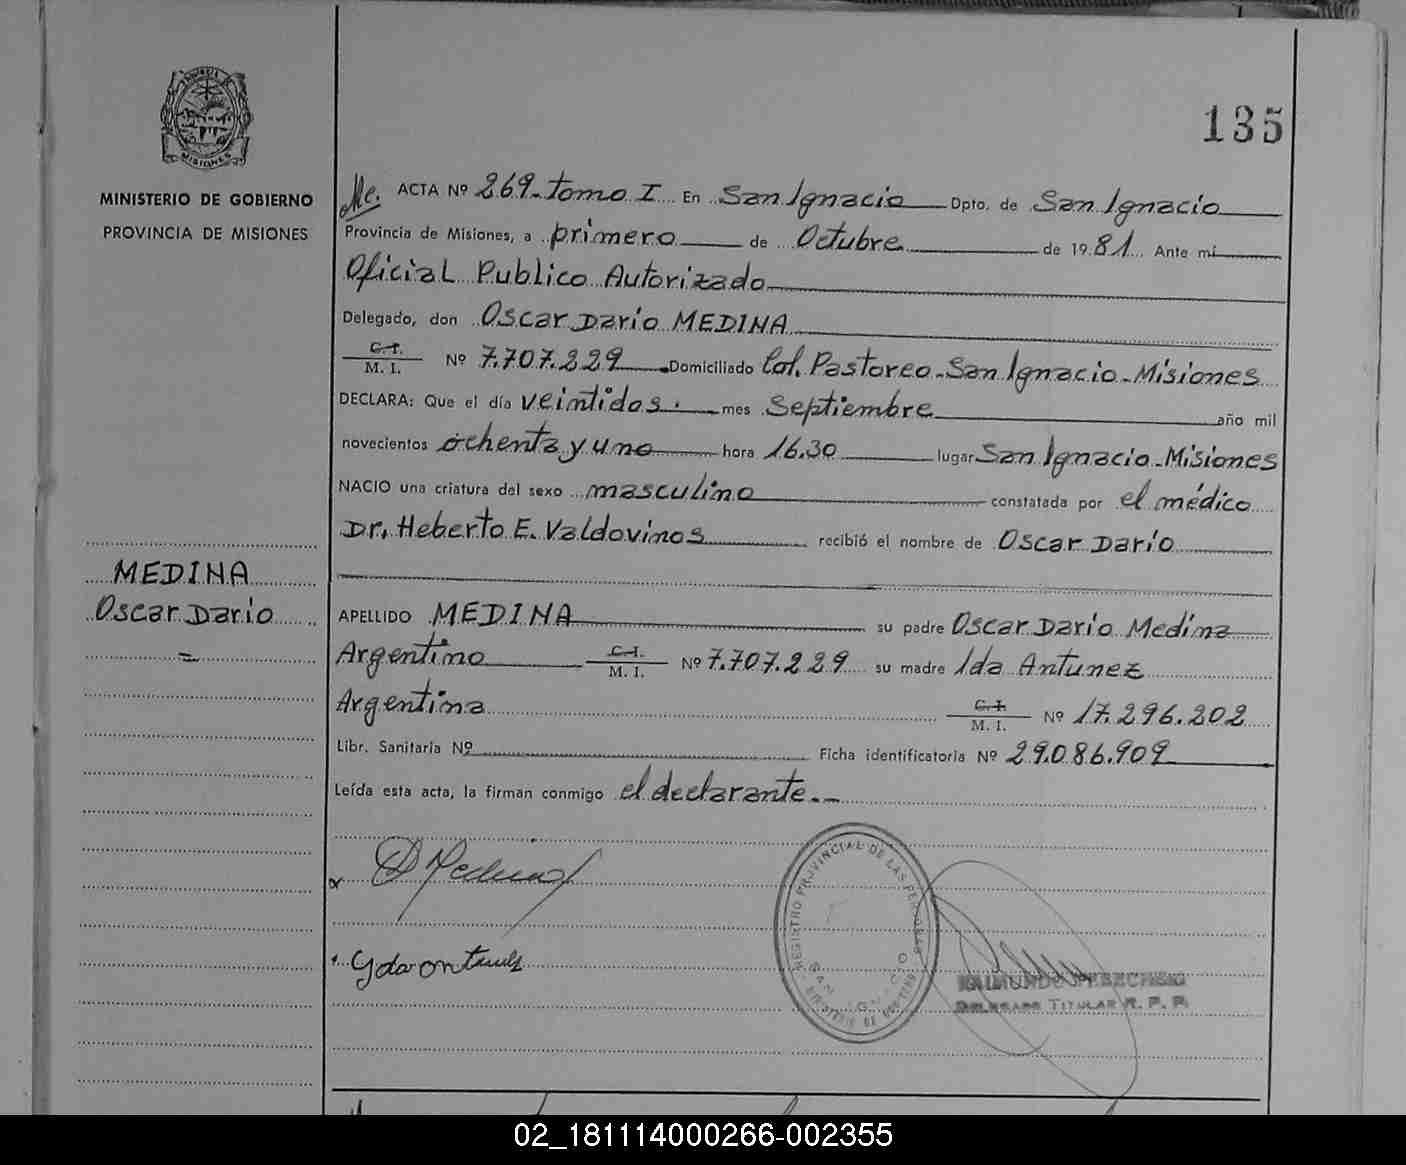 135
MISIONES
MINISTERIO DE GOBIERNO
PROVINCIA DE MISIONES
ACTA Nº 269-Tomo I En San Ignacio Dpto. de San Ignacio
Provincia de Misiones, a primero de Octubre de 1981 Ante mí
Oficial Publico Autorizado
Delegado, don Oscar Dario MEDINA
C.I.
M. I. Nº 7.707.229 Domiciliado Col. Pastoreo-San Ignacio-Misiones
DECLARA: Que el día veintidos. mes Septiembre año mil
novecientos ochenta y uno hora 16.30 lugar San Ignacio-Misiones
NACIO una criatura del sexo masculino constatada por el médico
Dr, Heberto E. Valdovinos recibió el nombre de Oscar Darío
MEDINA
Oscar Dario
=
APELLIDO MEDINA su padre Oscar Dario Medina
Argentino C.I. M. I. Nº 7.707.229 su madre Ida Antunez
Argentina C. I. M. I. Nº 17.296.202
Libr. Sanitaria Nº Ficha identificatoria Nº 29.086.909
Leída esta acta, la firman conmigo el declarante.-
REGISTRO PROVINCIAL DE LAS PERSONAS
SAN IGNACIO
DELEGADO TITULAR R. P. P.
02_181114000266-002355